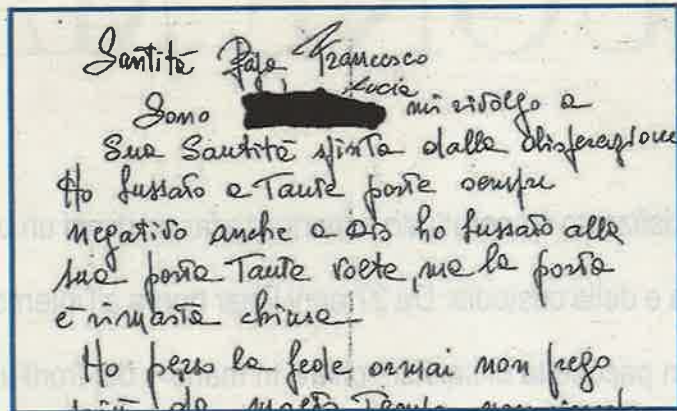 Santità Papa Francesco
Lucia
Sono mi rivolgo a
Sua Santità spinta dalla disperazione
Ho bussato a Tante porte sempre
negativo anche a Dio ho bussato alla
sua porta Tante volte, ma la porta
è rimasta chiusa
Ho perso la fede ormai non prego
più da molto Tempo